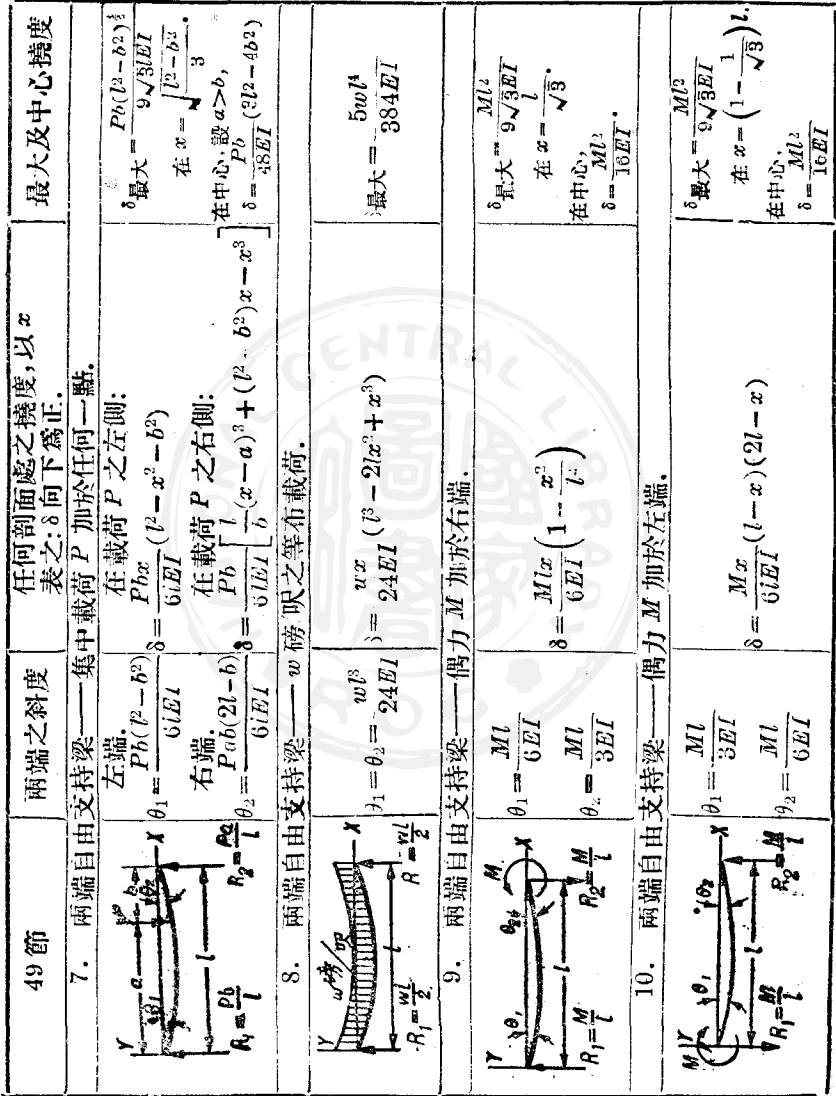 49 節
兩端之斜度
任何剖面處之撓度,以 x
表之: δ 向下為正.
最大及中心撓度
7. 兩端自由支持梁——集中載荷 P 加於任何一點.
Y
a
b
P
θ1
θ2
X
l
R1=Pb/l
R2=Pa/l
左端.
θ1=Pb(l²−b²)/6lEI
右端.
θ2=Pab(2l−b)/6lEI
在載荷 P 之左側:
δ=Pbx/6lEI (l²−x²−b²)
在載荷 P 之右側:
δ=Pb/6lEI [l/b (x−a)³+(l²−b²)x−x³]
δ最大=Pb(l²−b²)^(3/2)/9√3lEI
在 x=√((l²−b²)/3).
在中心,設 a>b,
δ=Pb/48EI (3l²−4b²)
8. 兩端自由支持梁——w 磅/呎之等布載荷.
Y
w磅/呎
X
l
R1=wl/2
R=wl/2
θ1=θ2=wl³/24EI
δ=wx/24EI (l³−2lx²+x³)
δ最大=5wl⁴/384EI
9. 兩端自由支持梁——偶力 M 加於右端.
Y
θ1
θ2
M
X
l
R1=M/l
R2=M/l
θ1=Ml/6EI
θ2=Ml/3EI
δ=Mlx/6EI (1−x²/l²)
δ最大=Ml²/9√3EI
在 x=l/√3.
在中心,
δ=Ml²/16EI.
10. 兩端自由支持梁——偶力 M 加於左端.
M
Y
θ1
θ2
X
l
R1=M/l
R2=M/l
θ1=Ml/3EI
θ2=Ml/6EI
δ=Mx/6lEI (l−x)(2l−x)
δ最大=Ml²/9√3EI
在 x=(1−1/√3)l.
在中心,
δ=Ml²/16EI
CENTRAL LIBRARY